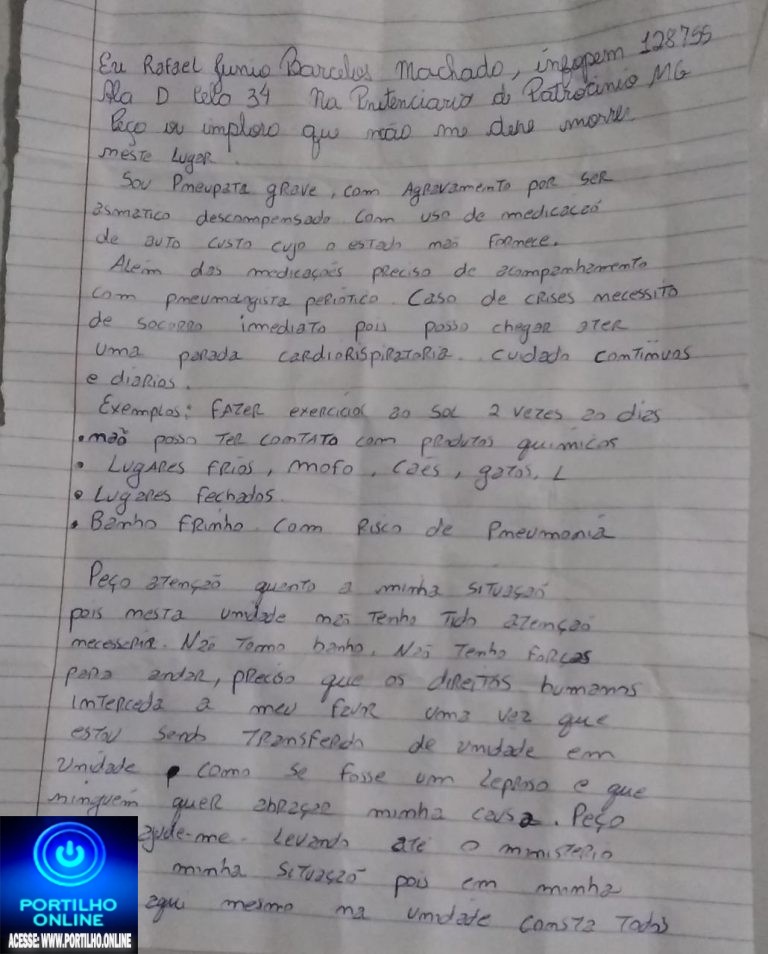 Eu Rafael Junio Barcelos Machado, infopem 128755
Ala D Cela 34 Na Pnitenciario de Patrocinio MG
Peço ou imploro que não me dexe morrer
neste Lugar.
Sou Pneupata grave, com Agravamento por ser
asmatico descompensado com uso de medicaçoõ
de auto custo cujo o estado não formece.
Aleim das medicações preciso de acompanhamento
com pneumologista periotico. Caso de crises necessito
de socorro imediato pois posso chegar ater
uma parada cardiorispiratoria. cuidado continuos
e diarios.
Exemplos: Fazer exercicios ao sol 2 vezes ao dias
• não posso ter contato com produtos quimicos
• Lugares frios, mofo, cães, gatos, L
• Lugares fechados.
• Banho frinho com Risco de Pneumonia
Peço atenção quanto a minha situação
pois nesta unidade não tenho tido atenção
necesseria. Não tomo banho, Não tenho forças
para andar, preciso que os direitos humanos
interceda a meu favor uma vez que
estou sendo transferido de unidade em
unidade como se fosse um leproso e que
ninguém quer abraçar minha causa. Peço
ajude-me. Levando até o ministerio
minha situação pois em minha
aqui mesmo na unidade consta todos
PORTILHO
ONLINE
ACESSE: WWW.PORTILHO.ONLINE